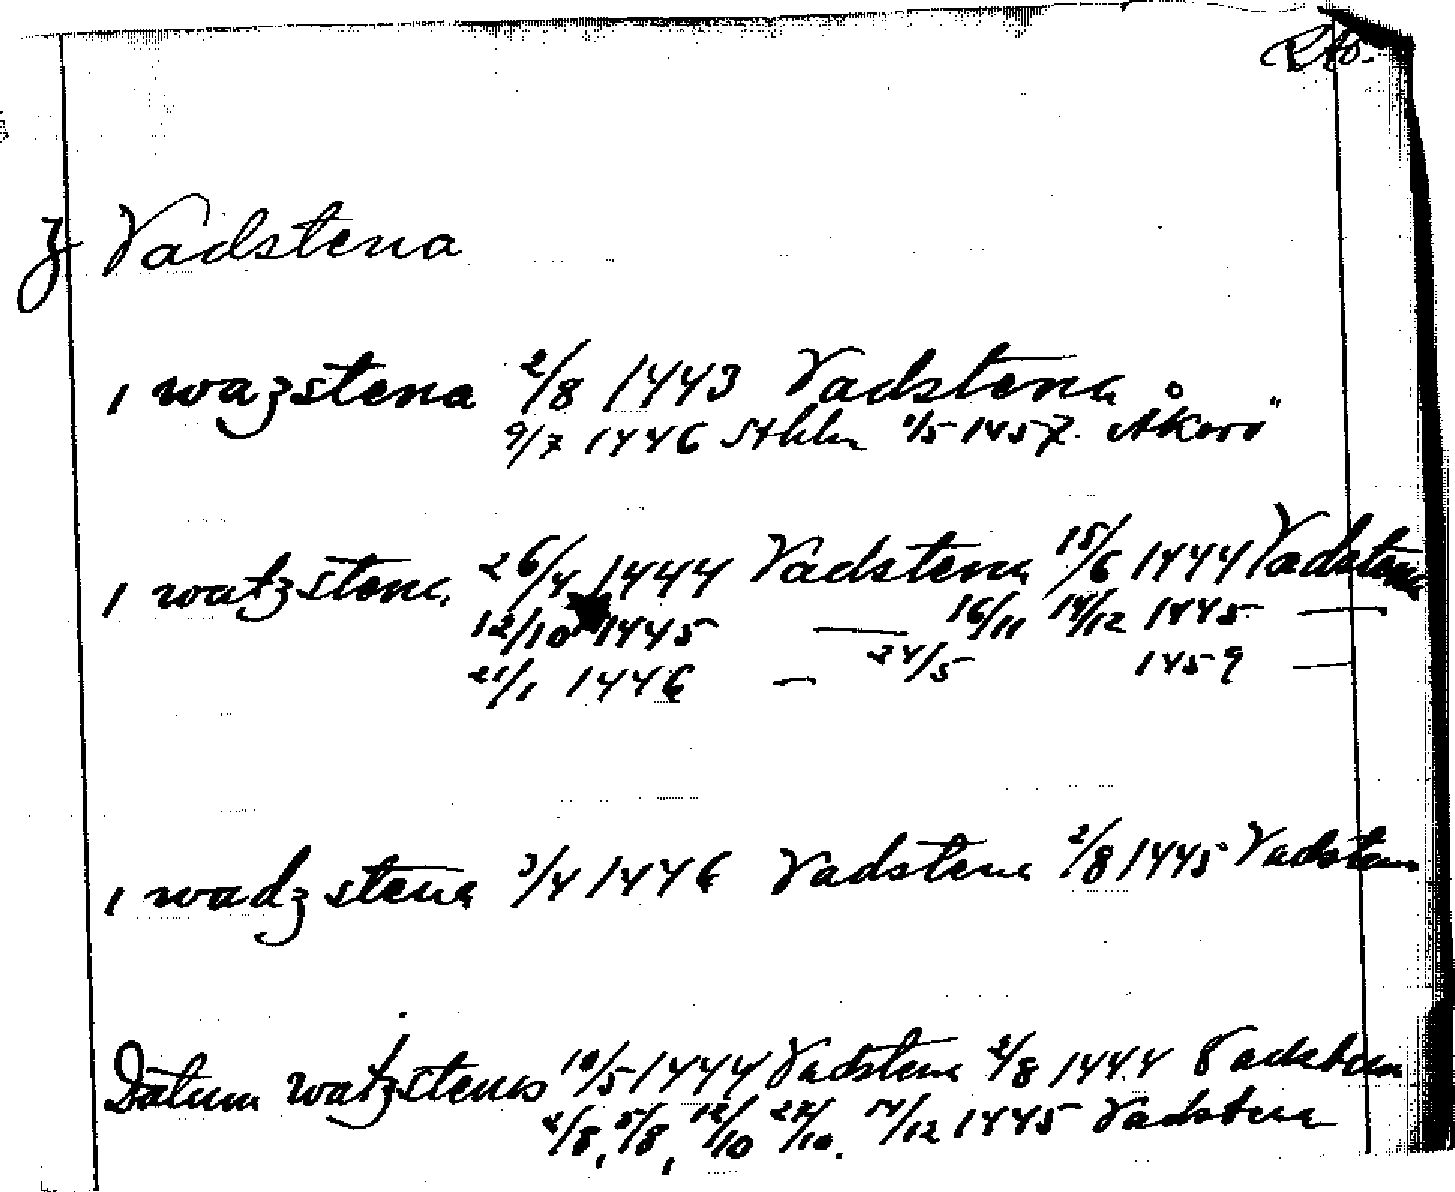 RAö.
Vadstena
i wazstena 2/8 1443 Vadstena
9/7 1446 Sthlm 1/5 1457. Åkerö
i watzstena 26/4 1444 Vadstena 15/6 1444 Vadstena
12/10 1445 — 16/11 14/12 1445 —
21/1 1446 — 24/5 1459 —
i wadzstena 3/4 1446 Vadstena 2/8 1445 Vadstena
Datum watzstenis 10/5 1444 Vadstena 2/8 1444 Vadstena
2/8, 5/8, 12/10 27/10. 14/12 1445 Vadstena